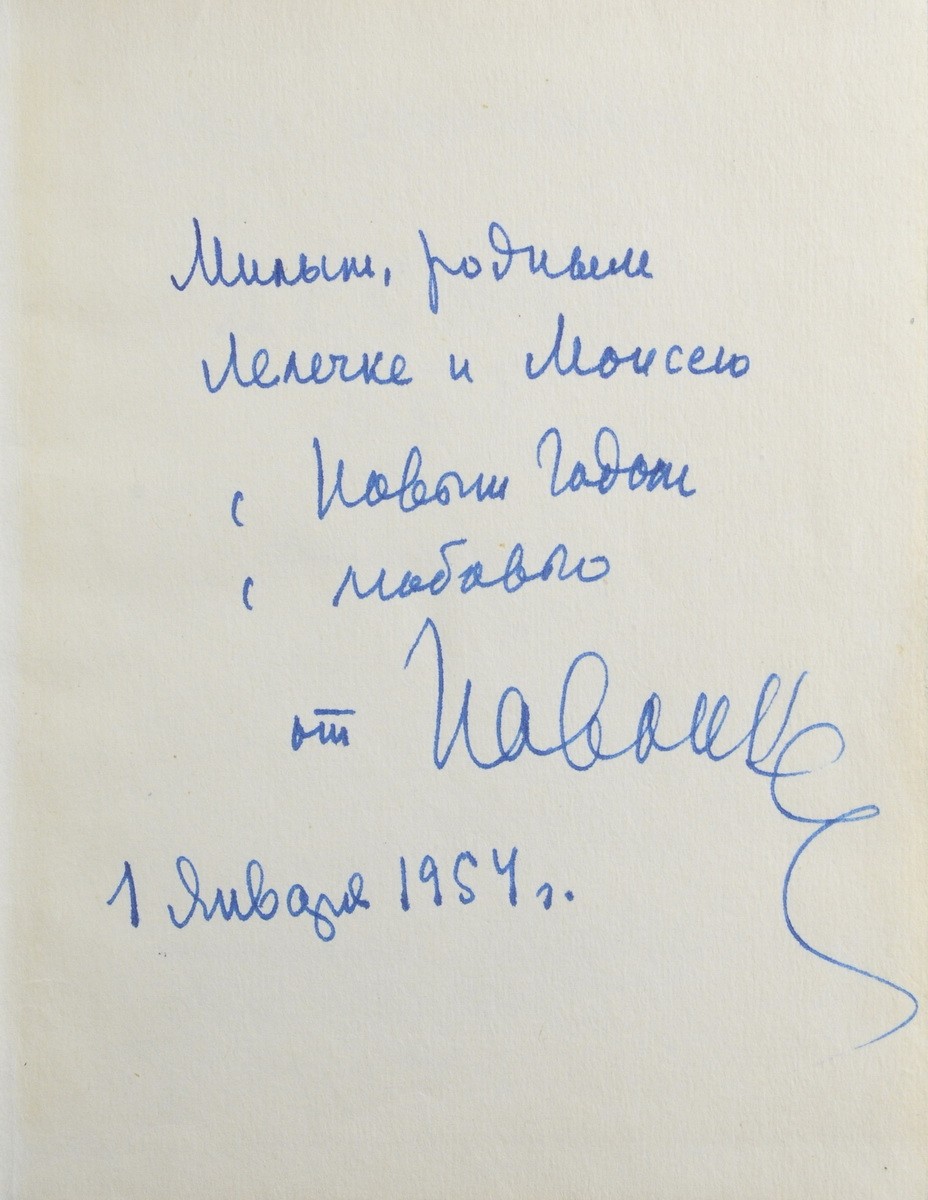 Милым, родным
Лелечке и Моисею
с Новым Годом
с любовью
от
1 Января 1954 г.